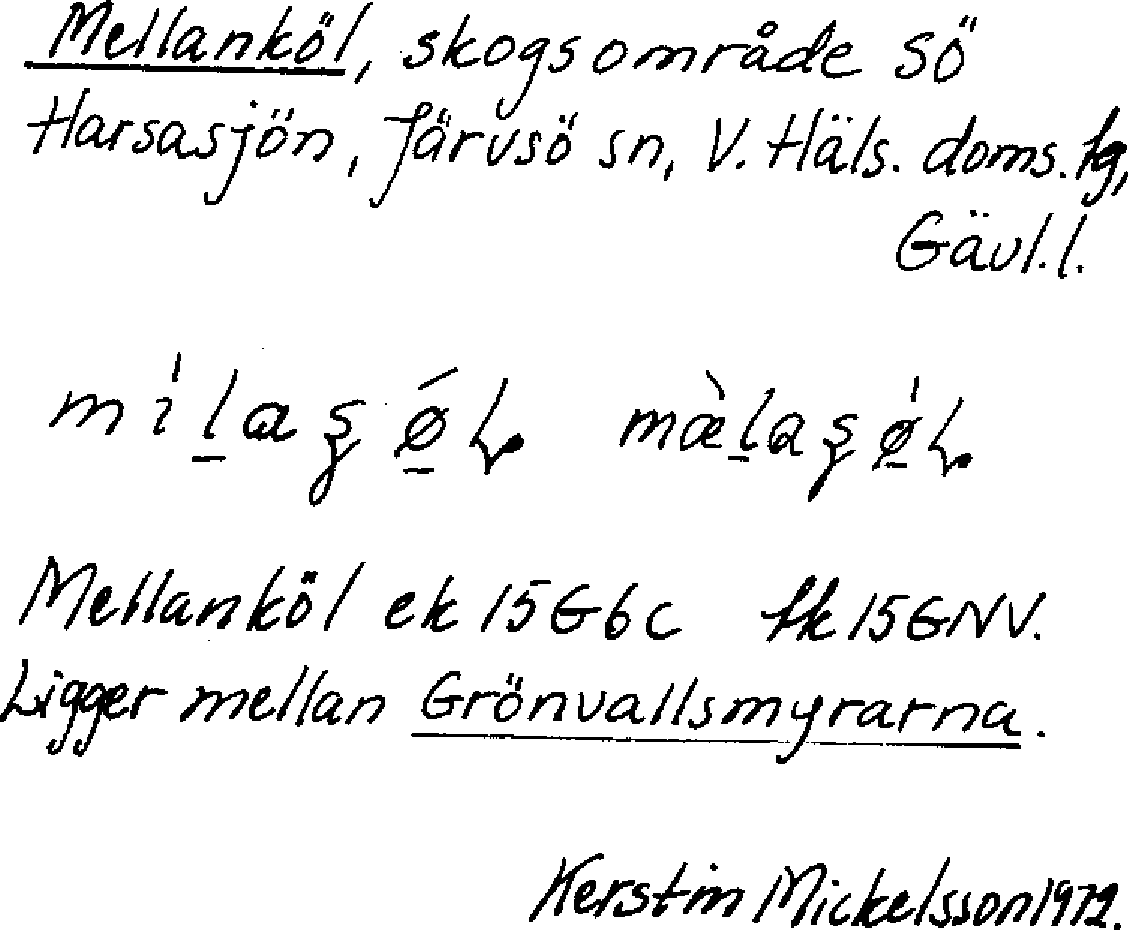 Mellanköl, skogsområde SÖ
Harsasjön, Järvsö sn, V. Häls. doms. tg,
Gävl. l.
Mellanköl ek 15G6c tk 15GNV.
Ligger mellan Grönvallsmyrarna.
Kerstin Mickelsson 1972.